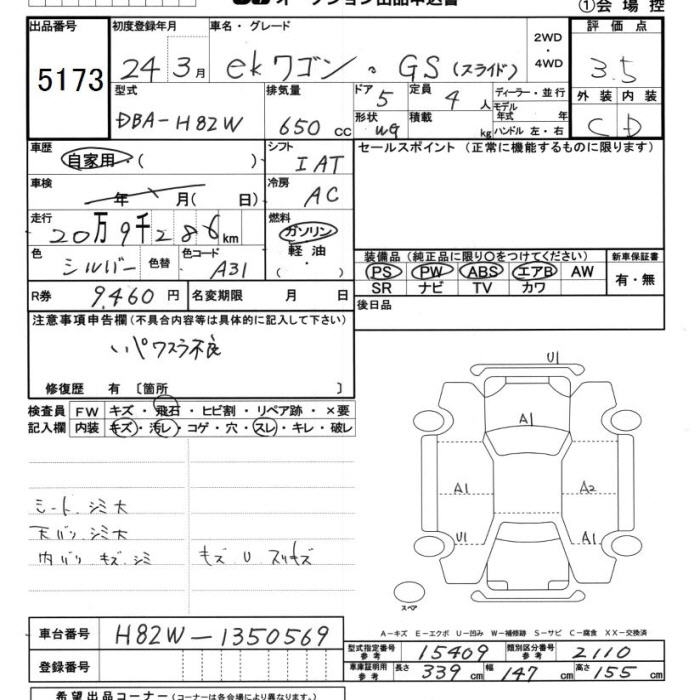 オークション出品申込書
①会場控
出品番号 5173
初度登録年月 24年3月
車名・グレード ekワゴン GS(スライド)
2WD・4WD
評価点 3.5
外装 C 内装 D
型式 DBA-H82W
排気量 650cc
ドア 5
形状 wg
定員 4人
積載 kg
ディーラー・並行
モデル年式 年
ハンドル 左・右
車歴 自家用・( )
シフト IAT
セールスポイント(正常に機能するものに限ります)
車検 年 月(日)
冷房 AC
走行 20万9千286km
燃料 ガソリン・軽油・( )
色 シルバー 色替 色コード A31
装備品(純正品に限り○をつけてください)
新車保証書 有・無
PS PW ABS エアB AW
SR ナビ TV カワ
R券 9,460円 名変期限 月 日
後日品
注意事項申告欄(不具合内容等は具体的に記入して下さい)
パワスラ不良
修復歴 有〔箇所 〕
検査員記入欄
FW キズ・飛石・ヒビ割・リペア跡・×要
内装 キズ・汚レ・コゲ・穴・スレ・キレ・破レ
シート、シミ大
天バリ、シミ大
内バリ キズ、シミ
キズ U スリキズ
U1
A1
A1
A2
U1
A1
スペア
A-キズ E-エクボ U-凹み W-補修跡 S-サビ C-腐食 XX-交換済
車台番号 H82W-1350569
登録番号
型式指定番号参考 15409 類別区分番号参考 2110
車庫証明用参考 長さ 339cm 幅 147cm 高さ 155cm
希望出品コーナー(コーナーは各会場により異なります。)